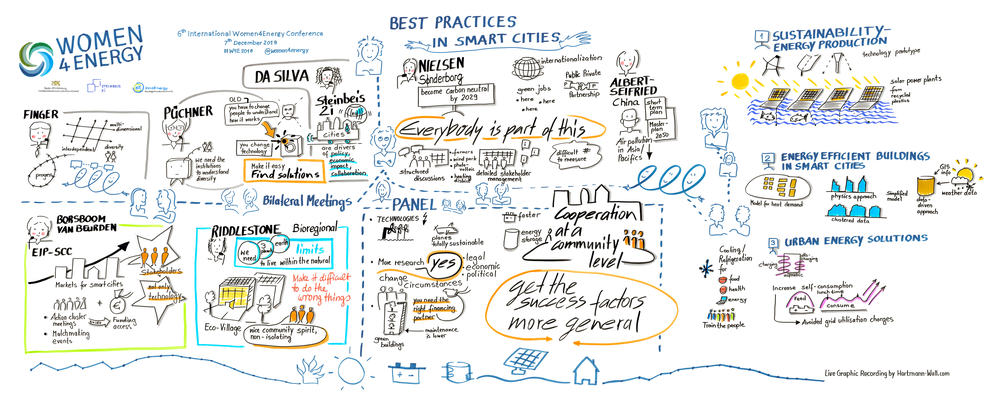 WOMEN
4ENERGY
6th International Women4Energy Conference
7th December 2018
#W4E2018 @women4energy
STEINBEIS
2i
FINGER
multi-
dimensional
interdependent
diversity
progress
PÜCHNER
we need the
institutions
to understand
diversity
DA SILVA
OLD
you have to change
people to understand
how it works
you change
technology
Make it easy
Find solutions
Steinbeis
2i
cities
are drivers
of policy,
economic
impact,
collaboration
Bilateral Meetings
BORSBOOM
VAN BEURDEN
EIP-SCC
Markets for smart cities
Stakeholders
not only
technology
• Action cluster
meetings
Funding
access
• Matchmaking
events
RIDDLESTONE
Bioregional
we
need
3
earth
limits
to live within the natural
Make it difficult
to do the
wrong things
Eco-Village
nice community spirit,
non-isolating
BEST PRACTICES
IN SMART CITIES
NIELSEN
Sønderborg
become carbon neutral
by 2029
internationalization
green jobs
• here • here
• here
Public Private
Partnership
ALBERT-
SEIFRIED
China
short
term
plan
Master-
plan
2050
Air pollution
in Asia/
Pacifics
Everybody is part of this
structured
discussions
• farmers
• wind park
detailed stakeholder
management
difficult #
to measure
PANEL
• TECHNOLOGIES
planes
fully sustainable
foster
energy
storage
• More research
yes
legal
economic
political
change
circumstances
you need the
right financing
partner
green
buildings
maintenence
is lower
Cooperation
at a
community
level
get the
success factors
more general
1 SUSTAINABILITY-
ENERGY PRODUCTION
technology prototype
solar power plants
from
recycled
plastics
2 ENERGY EFFICIENT BUILDINGS
IN SMART CITIES
Model for heat demand
physics approach
clustered data
Simplified
model
data-
driven
approach
GIS
info
weather data
3 URBAN ENERGY SOLUTIONS
Cooling/
Refrigeration
for
food
health
energy
Train the people
charging
Increase self-consumption
lunch-time
Feed
Consume
Avoided grid utilisation charges
Live Graphic Recording by Hartmann-Wall.com